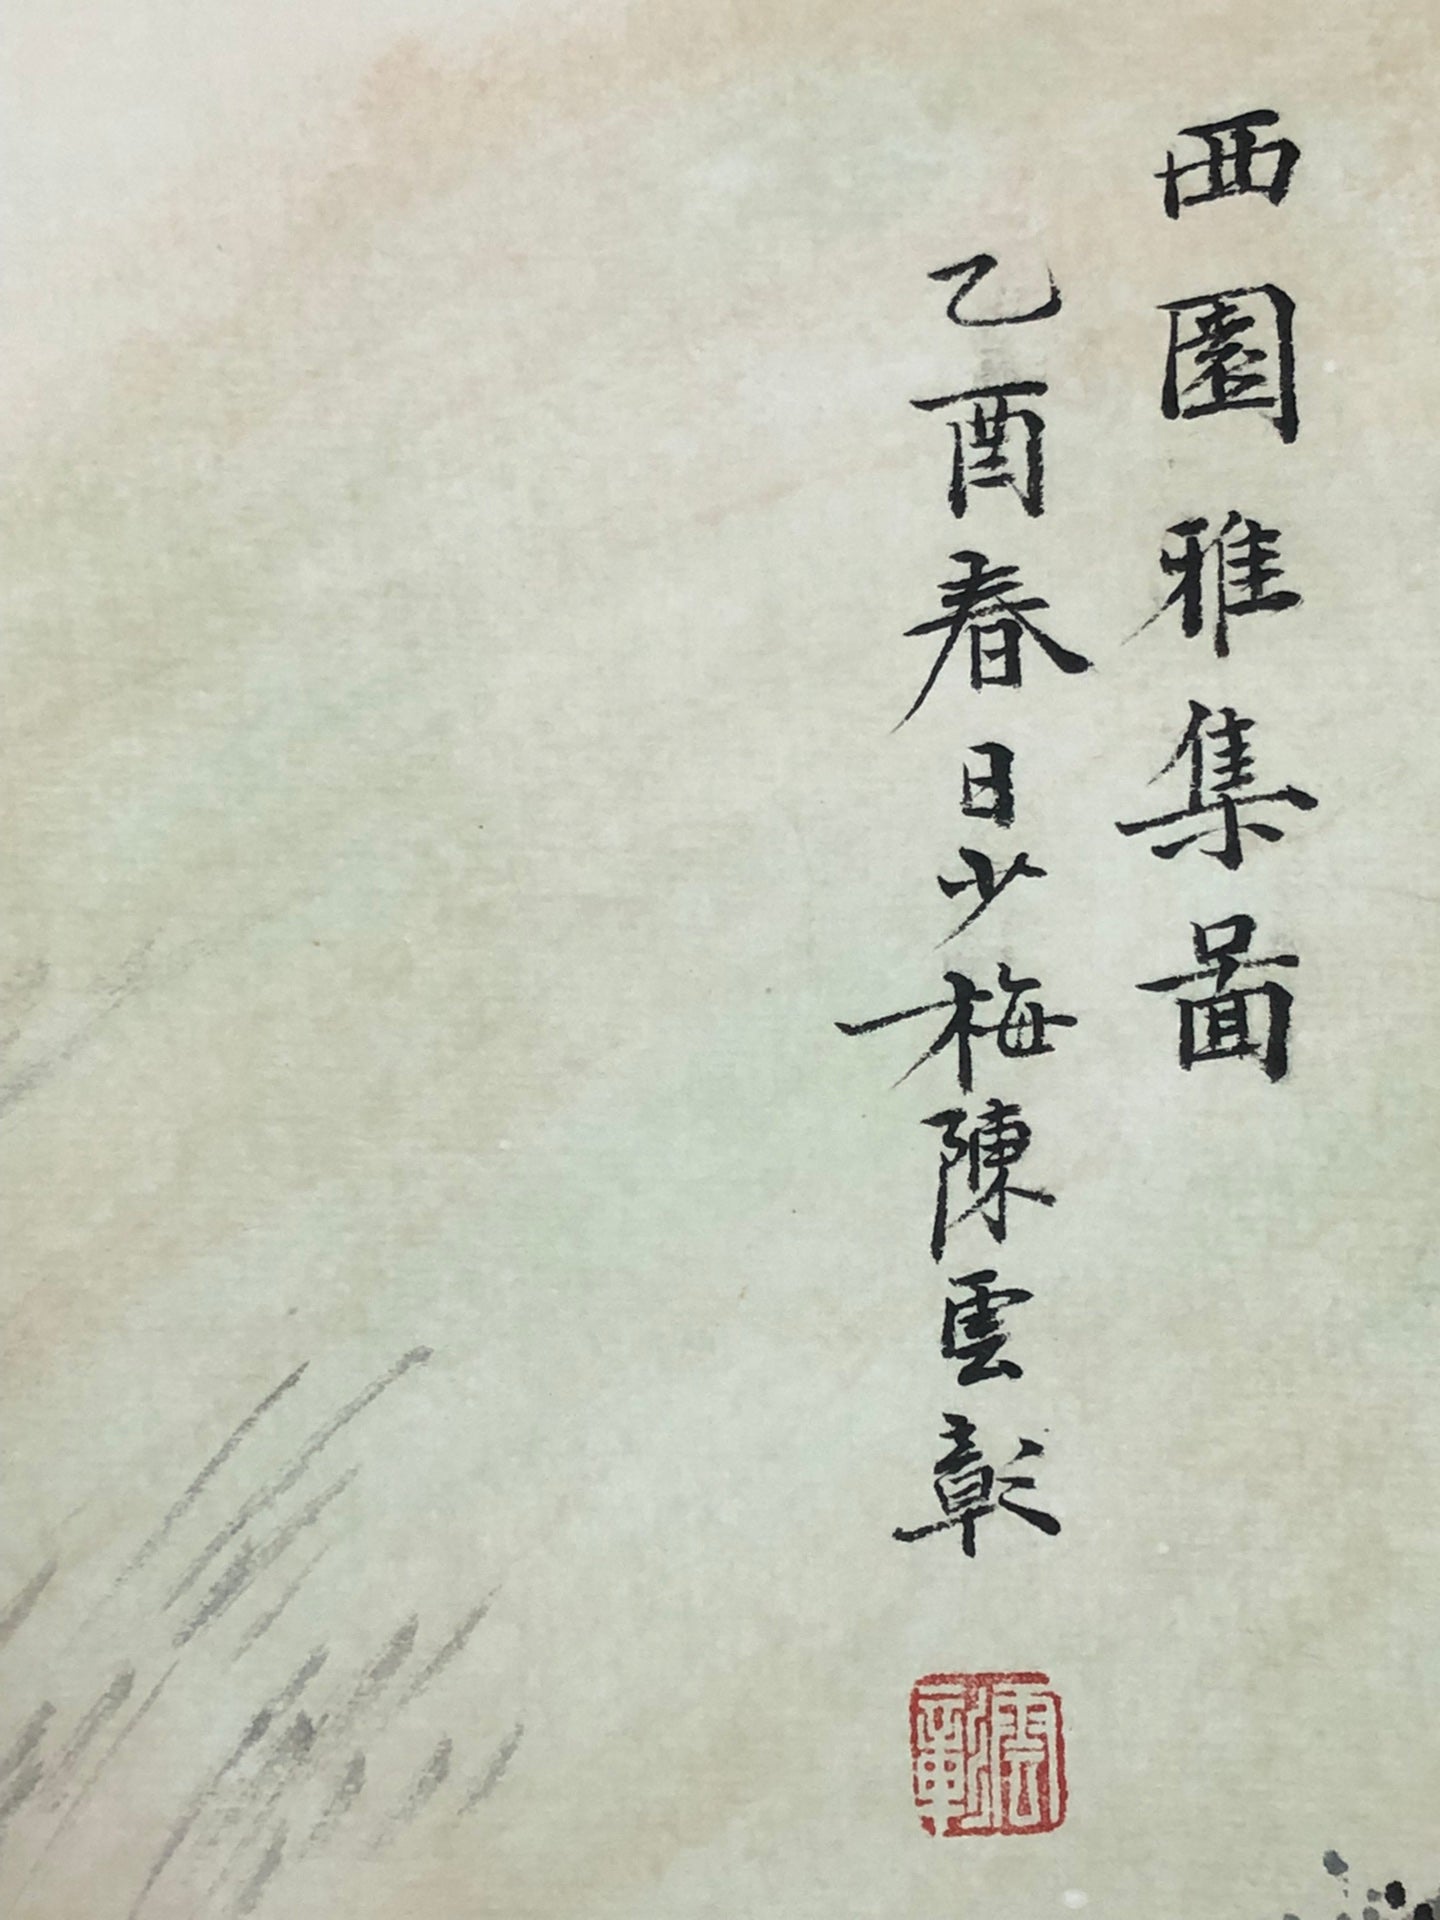 西園雅集圖
乙酉春日少梅陳雲彰
雲彰